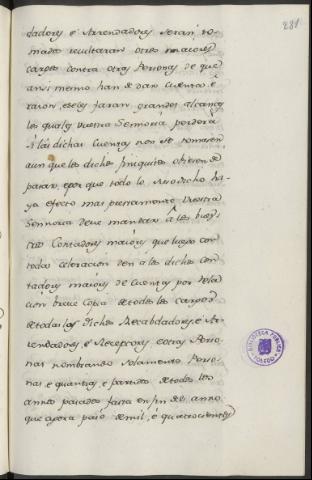 281
dadores é Arrendadores serán to-
mados resultaran otros maiores
cargos contra otras Personas de que
ansi mesmo han de dar cuenta é
razon, é seles faran grandes alcanzes
los quales vuestra Sennoria perderá
si las dichas cuentas non se tomasen
aunque los dichos finiquitos obiesen de
pasar, é por que todo lo susodicho ha-
ya efecto mas prestamente vuestra
Sennoria deve mandar á los vues-
tros Contadores maiores que luego con
toda celeracion den á los dichos con-
tadores maiores de cuentas por rela-
cion breve copia de todos los cargos
de todas las dichas Recabdadores, é Ar-
rendadores, é Receptores, é otras Perso-
nas nombrando solamente Perso-
nas é quantias, é partidos de todos los
annos pasados fasta en fin del anno
que agora pasó de mil, é quatrocientos
BIBLIOTECA PUBLICA
TOLEDO